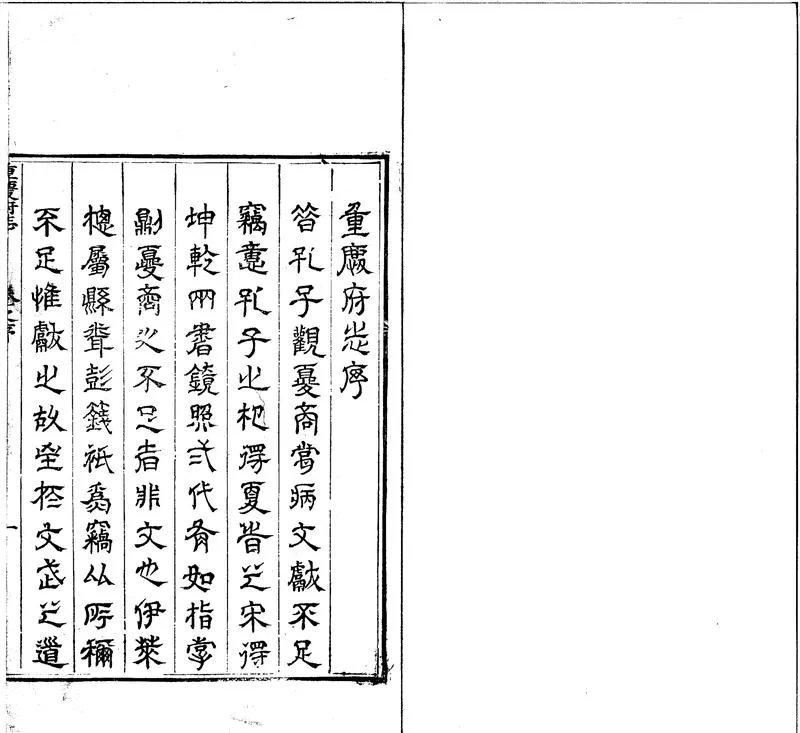 重慶府志序
昔孔子觀夏商嘗病文獻不足
竊意孔子之杞得夏時之宋得
坤乾兩書鏡照弍代有如指掌
則夏商之不足者非文也伊萊
屬縣聳彭籛祇爲竊比所穪
不足惟獻之故至於文武之道
重慶府志 序 一